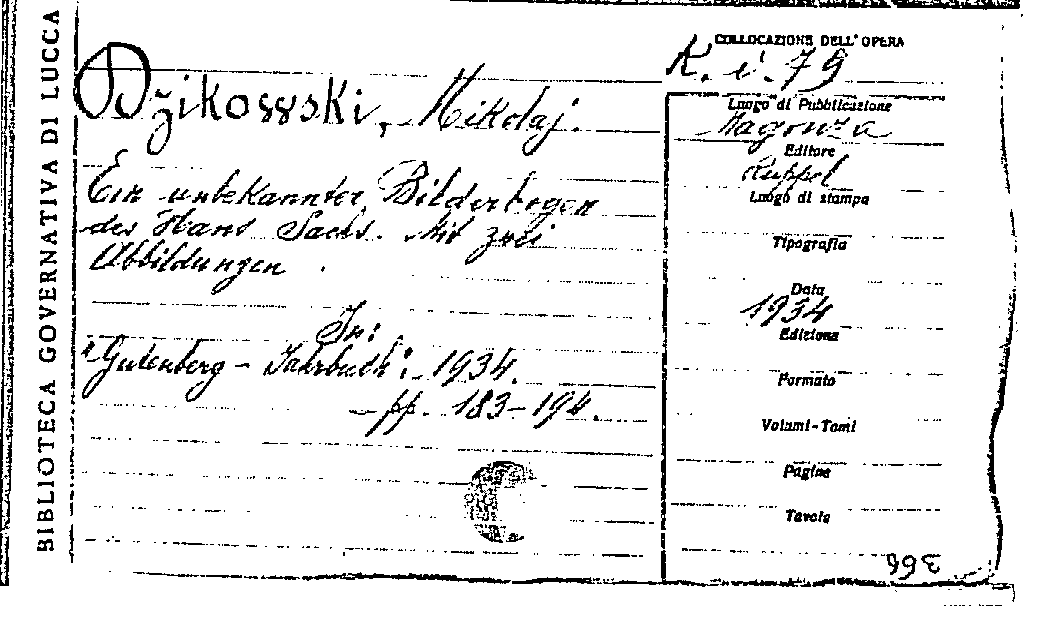 BIBLIOTECA GOVERNATIVA DI LUCCA
COLLOCAZIONE DELL' OPERA
K. i. 79
Džikowski, Mikolaj.
Ein unbekannter Bilderbogen
des Hans Sachs. Mit zwei
Abbildungen
In:
"Gutenberg - Jahrbuch": 1934.
- pp. 183-194.
Luogo di Pubblicazione
Magonza
Editore
Ruppel
Luogo di stampa
Tipografia
Data
1934
Edizione
Formato
Volumi-Tomi
Pagine
Tavole
366